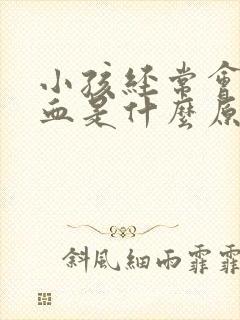 小孩经常會
血是什麼原
斜風細雨霏霏